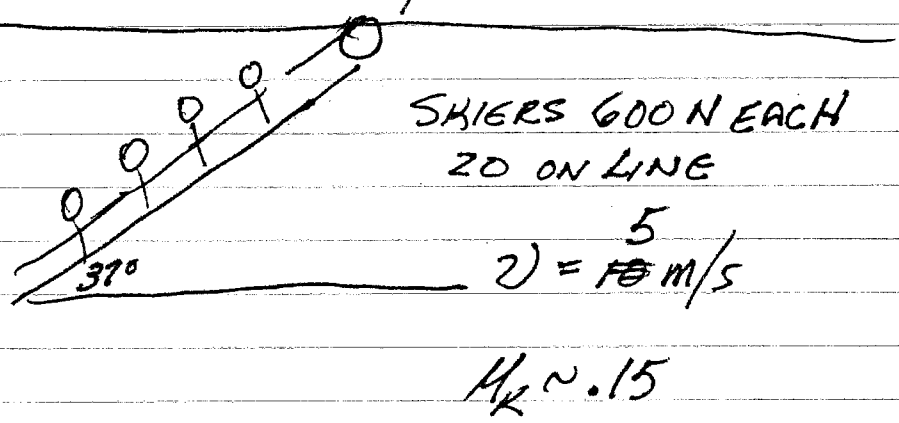 SKIERS 600 N EACH
20 ON LINE
37°
v = 5 m/s
μk ~ .15